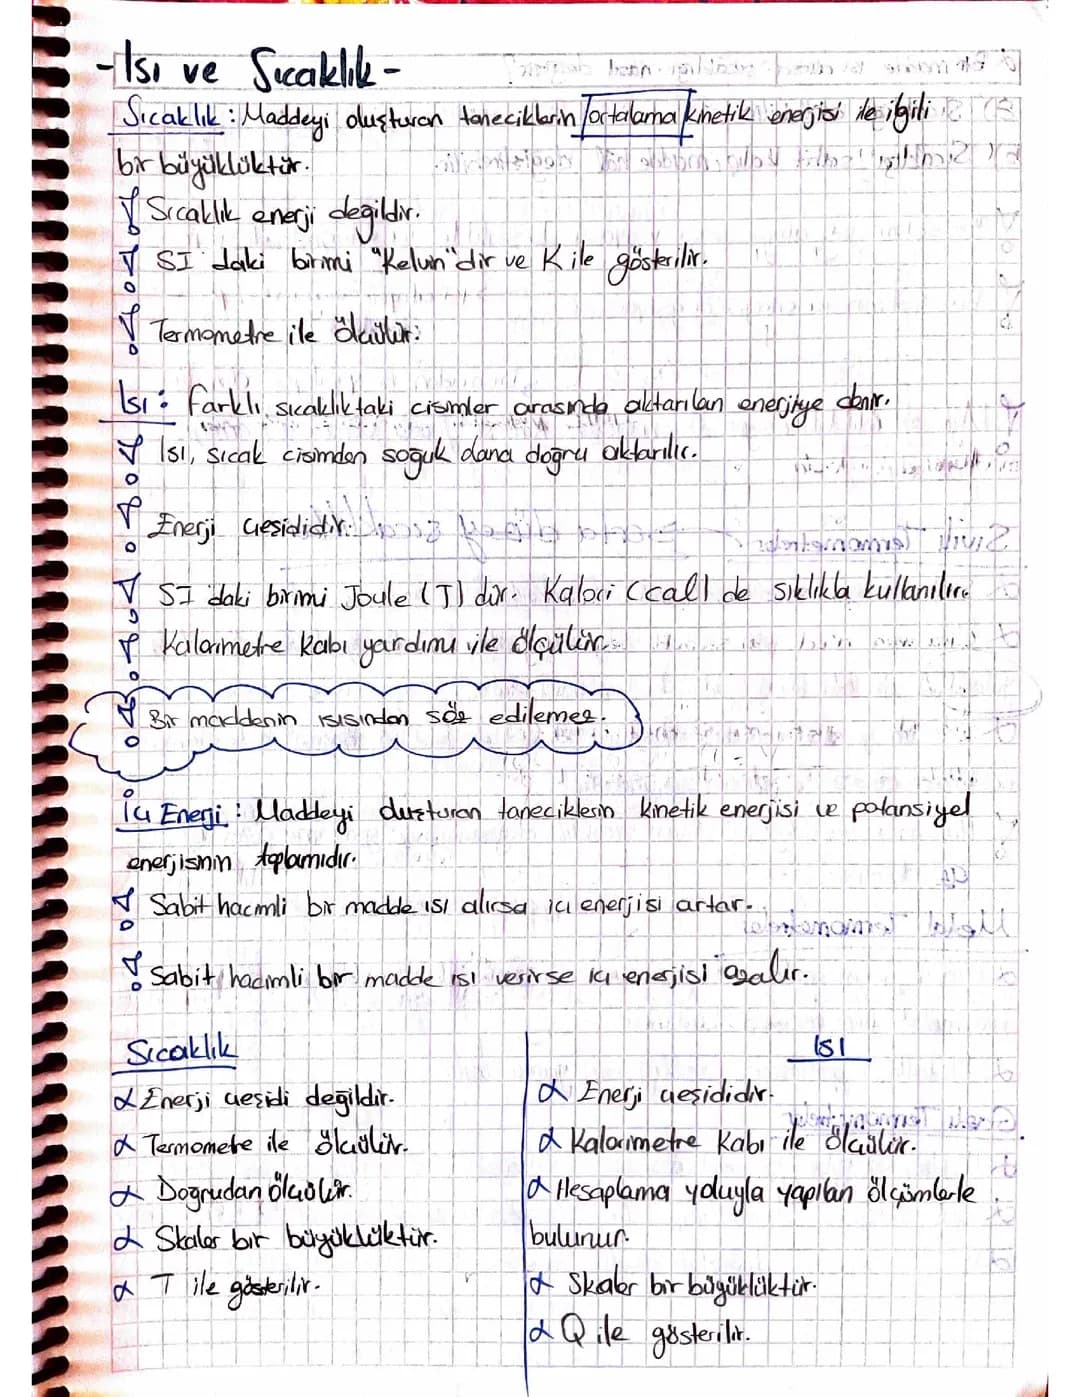 -Isı ve Sıcaklık-
Sıcaklık : Maddeyi oluşturan taneciklerin ortalama kinetik enerjisi ile ilgili
bir büyüklüktür.
! Sıcaklık enerji değildir.
! SI daki birimi "Kelvin"dir ve K ile gösterilir.
! Termometre ile ölçülür.
Isı : farklı sıcaklıktaki cisimler arasında aktarılan enerjiye denir.
! Isı, sıcak cisimden soğuk olana doğru aktarılır.
! Enerji çeşididir.
! SI daki birimi Joule (J) dür. Kalori (cal) de sıklıkla kullanılır.
! Kalorimetre kabı yardımı ile ölçülür.
! Bir maddenin ısısından söz edilemez.
İç Enerji : Maddeyi oluşturan taneciklerin kinetik enerjisi ve potansiyel
enerjisinin toplamıdır.
! Sabit hacimli bir madde ısı alırsa iç enerjisi artar.
! Sabit hacimli bir madde ısı verirse iç enerjisi azalır.
Sıcaklık
α Enerji çeşidi değildir.
α Termometre ile ölçülür.
α Doğrudan ölçülür.
α Skaler bir büyüklüktür.
α T ile gösterilir.
ISI
α Enerji çeşididir.
α Kalorimetre Kabı ile ölçülür.
α Hesaplama yoluyla yapılan ölçümlerle
bulunur.
α Skaler bir büyüklüktür.
α Q ile gösterilir.